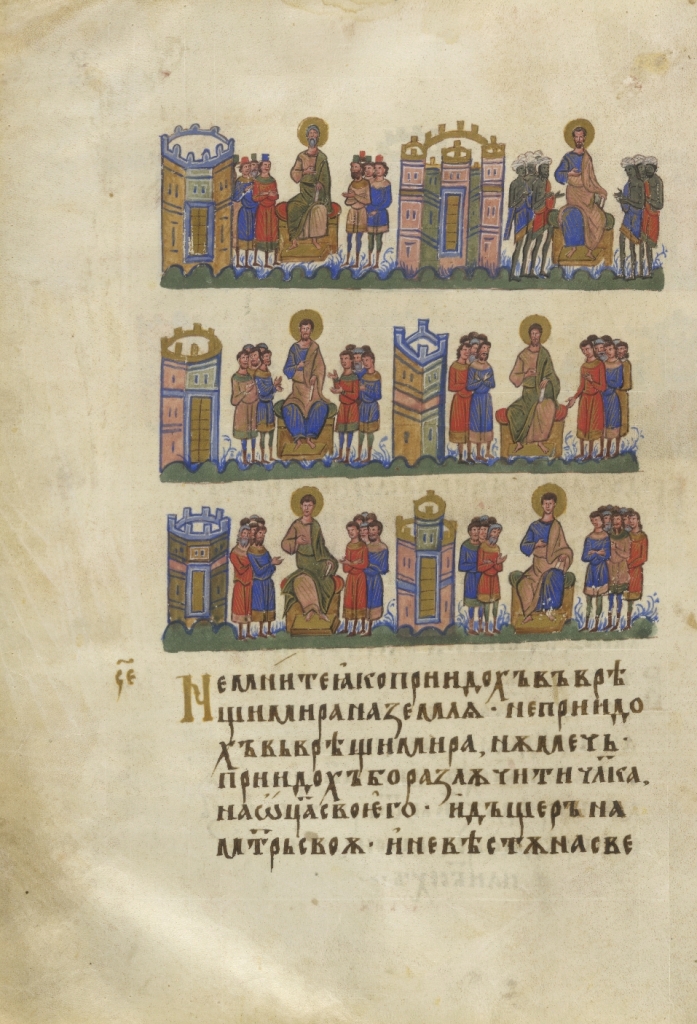 ч҃е
Не мнитеꙗкоприидохъвъврѣ
щимираназемлѧ · неприидо
хъвьврѣщимира, нѫмечь ·
приидохъборазлѫчитичл҃ка,
наѡц҃асвоѥго · идъщерьна
мт҃рьсвоѫ · иневѣстѫнасве